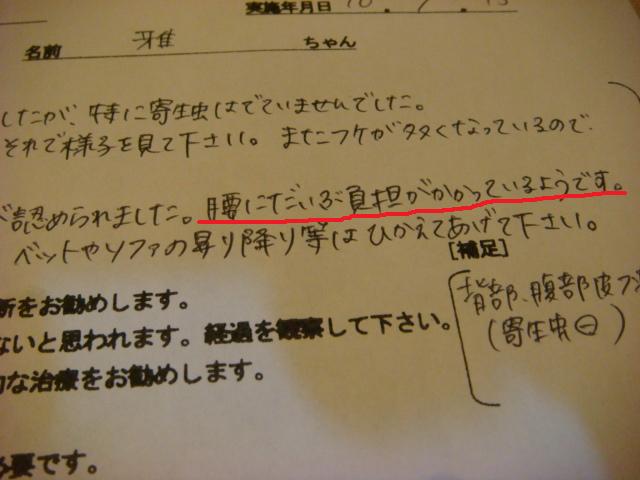 実施年月日 10 . 7 . 13
名前 雅 ちゃん
したが、特に寄生虫はでていませんでした。
それで様子を見て下さい。またフケが多くなっているので
認められました。腰にだいぶ負担がかかっているようです。
ベットやソファの昇り降り等はひかえてあげて下さい。
[補足]
背部、腹部皮フ
(寄生虫⊖)
断をお勧めします。
ないと思われます。経過を観察して下さい。
的な治療をお勧めします。
必要です。